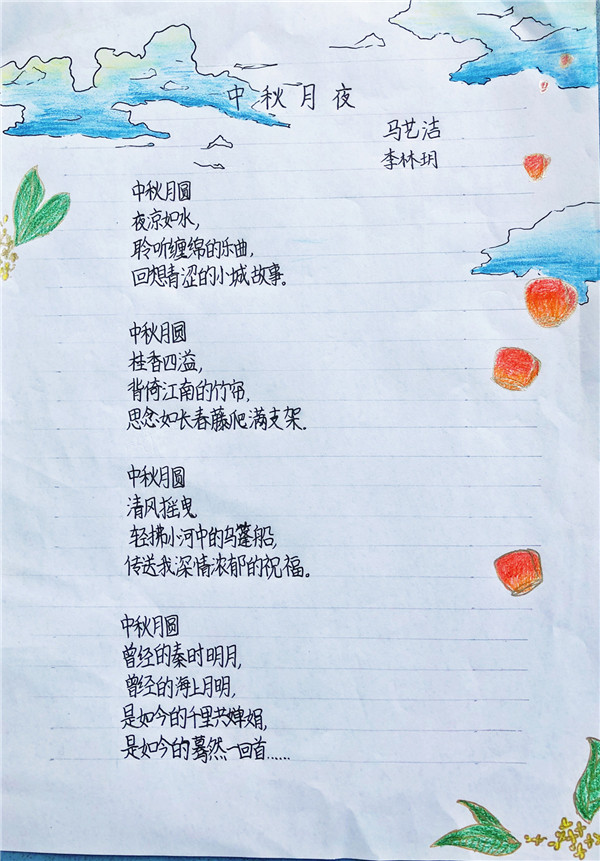 中秋月夜
马艺洁
李林玥
中秋月圆
夜凉如水,
聆听缠绵的乐曲,
回想青涩的小城故事。
中秋月圆
桂香四溢,
背倚江南的竹帘,
思念如长春藤爬满支架。
中秋月圆
清风摇曳
轻拂小河中的乌篷船,
传送我深情浓郁的祝福。
中秋月圆
曾经的秦时明月,
曾经的海上月明,
是如今的千里共婵娟,
是如今的蓦然一回首……